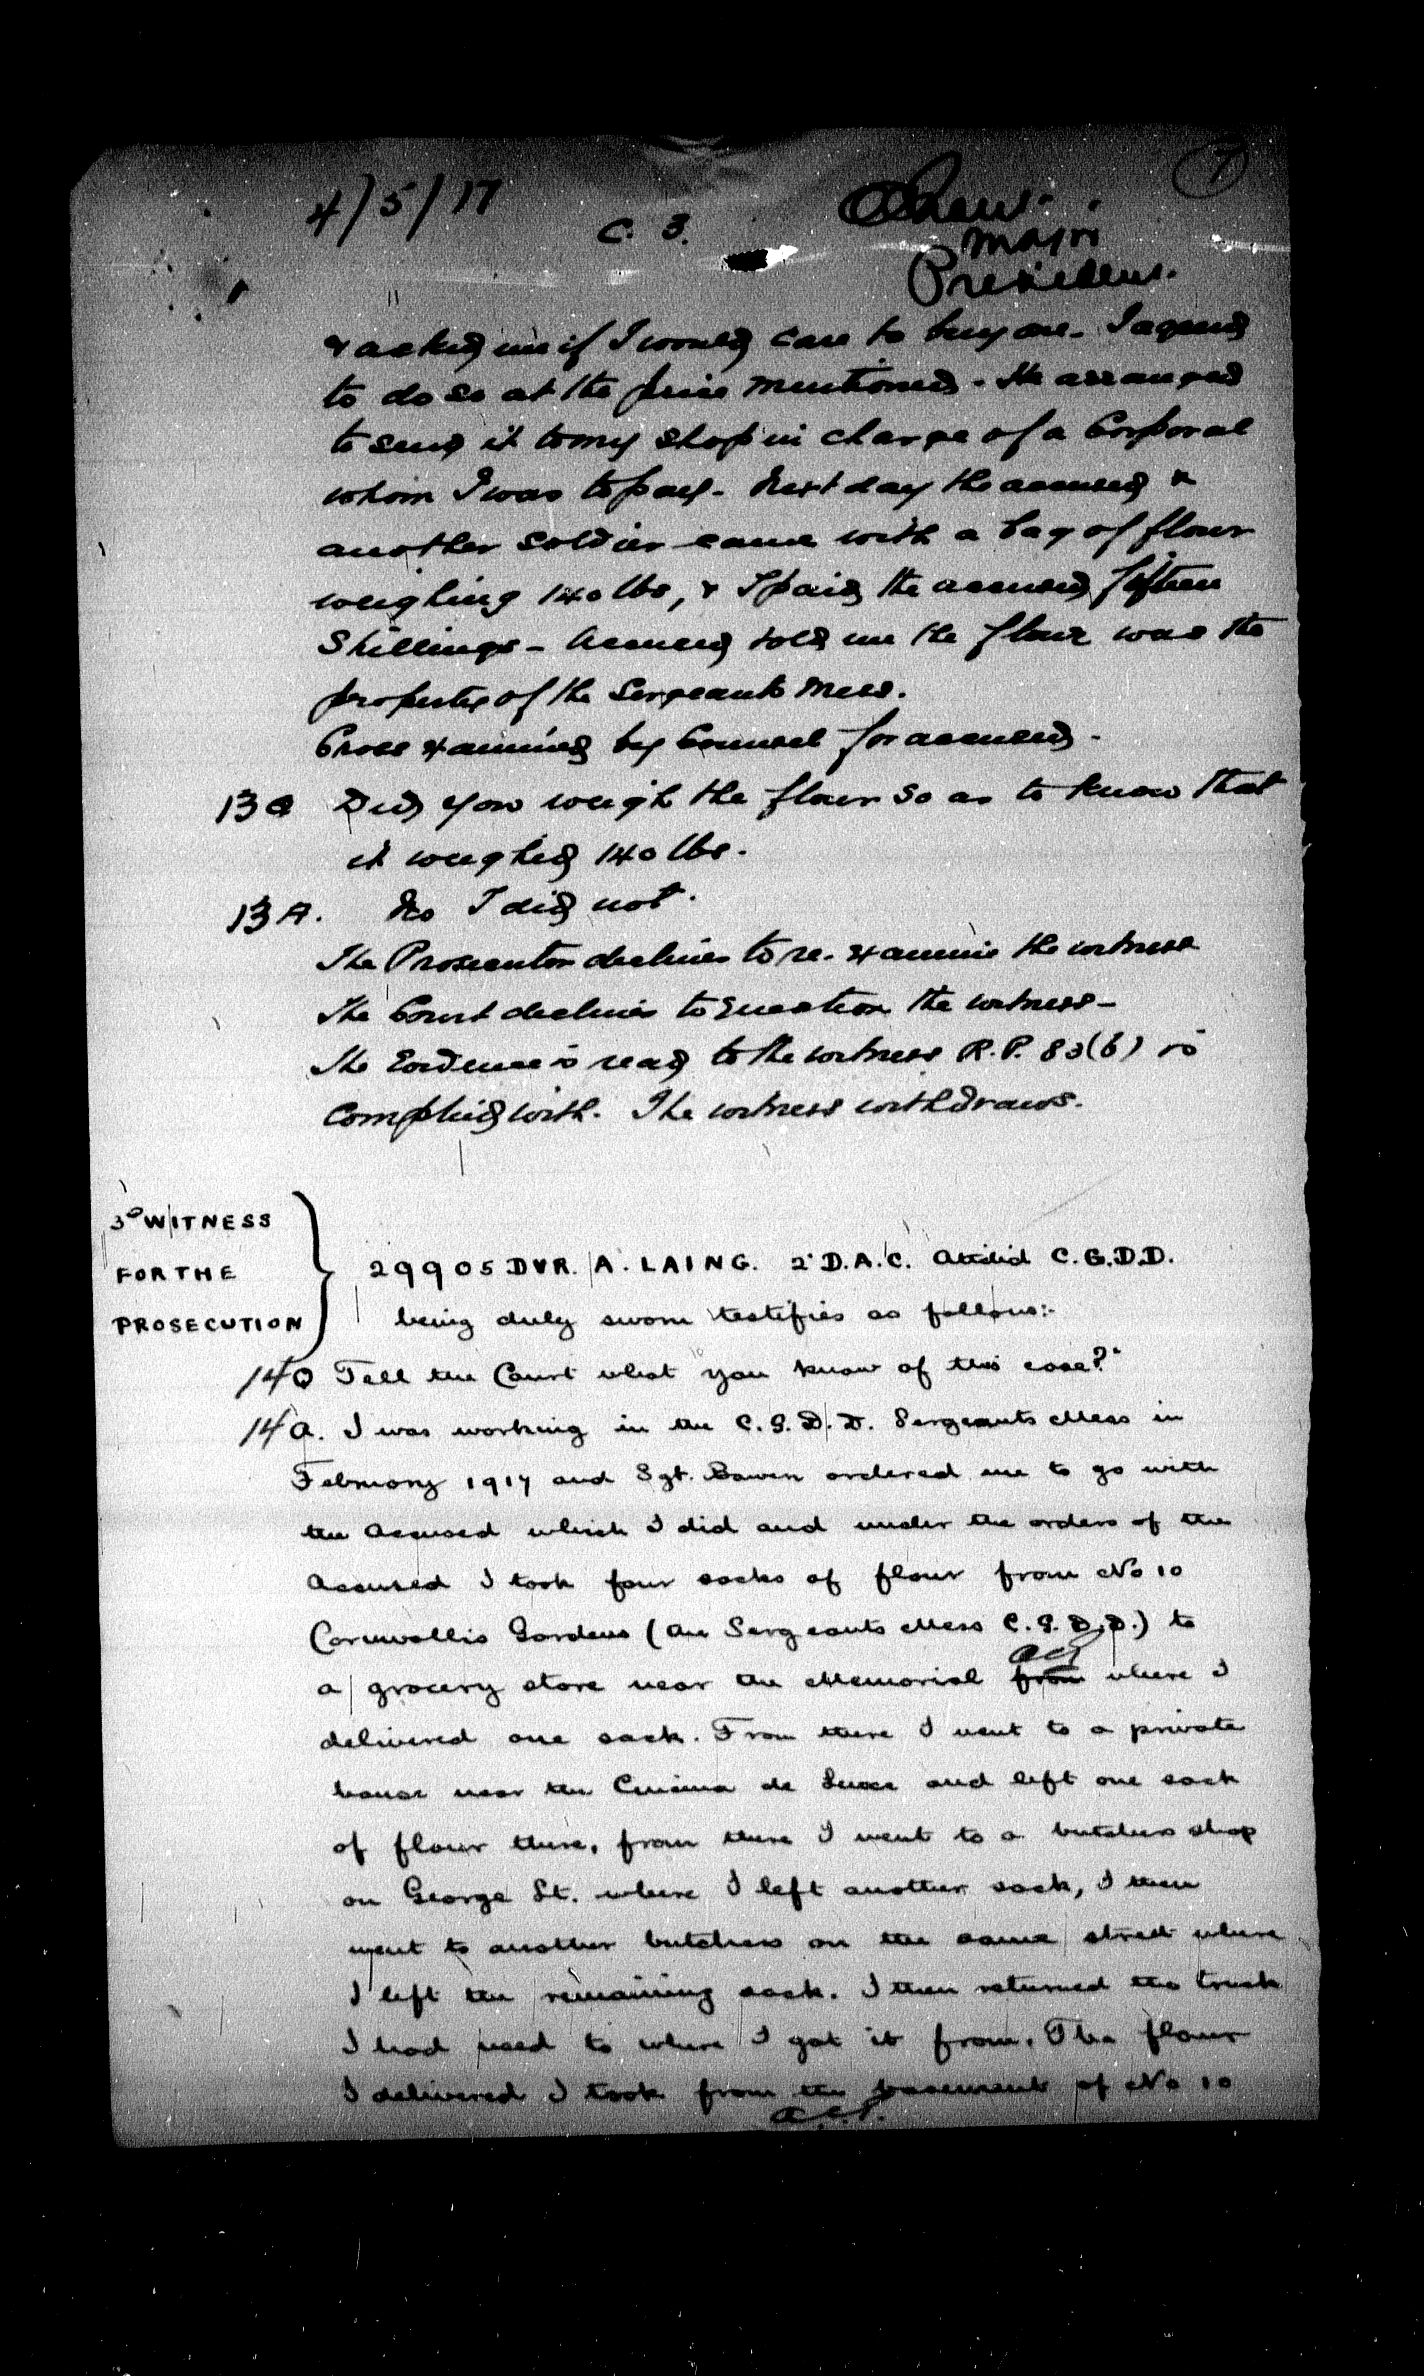 7
4/5/17
C. 3.
Major
President.
& asked me if I would care to buy one. I agreed
to do so at the price mentioned. He arranged
to send it to my shop in charge of a Corporal
whom I was to pay. Next day the accused &
another soldier came with a bag of flour
weighing 140 lbs, & I paid the accused fifteen
Shillings - Accused told me the flour was the
property of the Sergeants Mess.
Cross examined by Counsel for accused.
13 Q Did you weigh the flour so as to know that
it weighed 140 lbs.
13 A. No I did not.
The Prosecutor declines to re-examine the witness
The Court declines to question the witness -
The Evidence is read to the witness R.P. 83(b) is
complied with. The witness withdraws.
3D WITNESS
FOR THE
PROSECUTION
29905 DVR. A. LAING. 2 D.A.C. Attchd C.G.D.D.
being duly sworn testifies as follows:-
14 Q Tell the Court what you know of this case?
14 A. I was working in the C.G.D.D. Sergeants Mess in
February 1917 and Sgt. Bowen ordered me to go with
the Accused which I did and under the orders of the
Accused I took four sacks of flour from No 10
Cornwallis Gardens (the Sergeants Mess C.G.D.D.) to
a grocery store near the Memorial from where I
delivered one sack. From there I went to a private
house near the Cinema de Luxe and left one sack
of flour there, from there I went to a butchers shop
on George St. where I left another sack, I then
went to another butchers on the same street where
I left the remaining sack. I then returned the truck
I had used to where I got it from. The flour
I delivered I took from the basement of No 10